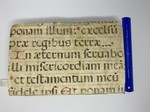 ponam illum: excelsũ
præ regibus terræ...
In æternum servabo
illi misericordiam meã
et testamentum meũ